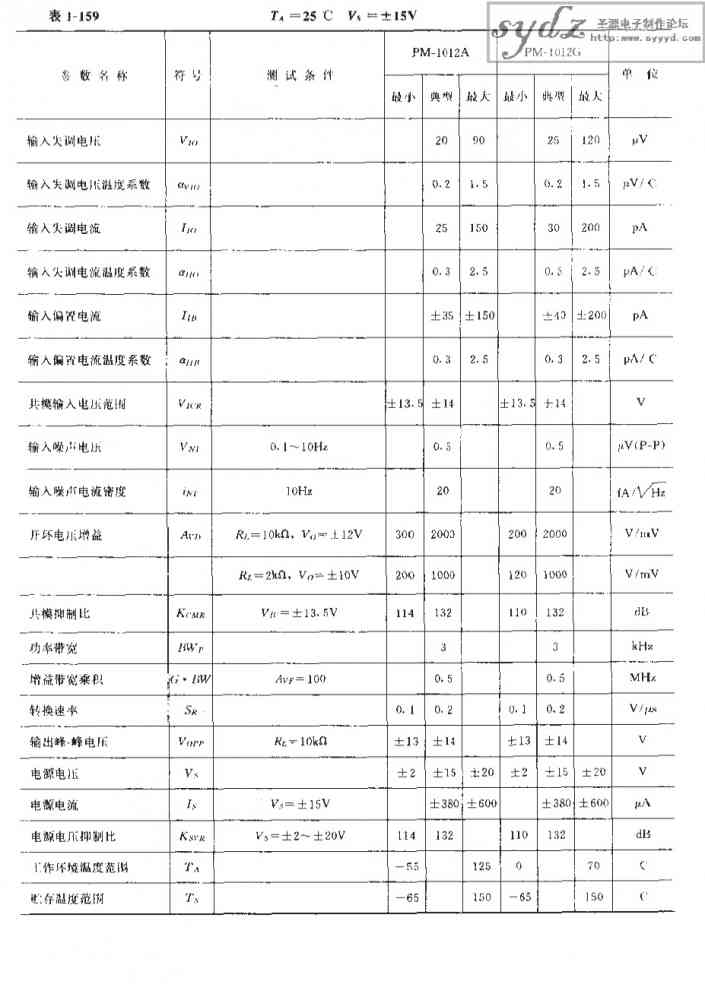 表 1-159 T_A=25℃ V_S=±15V
sydz 圣源电子制作论坛
http:www.syyyd.com
参数名称 符号 测试条件 PM-1012A PM-1012G 单位
最小 典型 最大 最小 典型 最大
输入失调电压 V_IO 20 90 25 120 μV
输入失调电压温度系数 α_VIO 0.2 1.5 0.2 1.5 μV/℃
输入失调电流 I_IO 25 150 30 200 pA
输入失调电流温度系数 α_IIO 0.3 2.5 2.5 pA/℃
输入偏置电流 I_IB ±35 ±150 ±40 ±200 pA
输入偏置电流温度系数 α_IIB 0.3 2.5 0.3 2.5 pA/℃
共模输入电压范围 V_ICR ±13.5 ±14 ±13.5 ±14 V
输入噪声电压 V_NI 0.1~10Hz 0.5 0.5 μV(P-P)
输入噪声电流密度 i_NI 10Hz 20 20 fA/√Hz
开环电压增益 A_VD R_L=10kΩ, V_O=±12V 300 2000 200 2000 V/mV
R_L=2kΩ, V_O=±10V 200 1000 120 1000 V/mV
共模抑制比 K_CMR V_IC=±13.5V 114 132 110 132 dB
功率带宽 BW_P 3 3 kHz
增益带宽乘积 G·BW A_VF=100 0.5 0.5 MHz
转换速率 S_R 0.1 0.2 0.1 0.2 V/μs
输出峰-峰电压 V_OPP R_L=10kΩ ±13 ±14 ±13 ±14 V
电源电压 V_S ±2 ±15 ±20 ±2 ±15 ±20 V
电源电流 I_S V_S=±15V ±380 ±600 ±380 ±600 μA
电源电压抑制比 K_SVR V_S=±2~±20V 114 132 110 132 dB
工作环境温度范围 T_A -55 125 0 70 ℃
贮存温度范围 T_S -65 150 -65 150 ℃